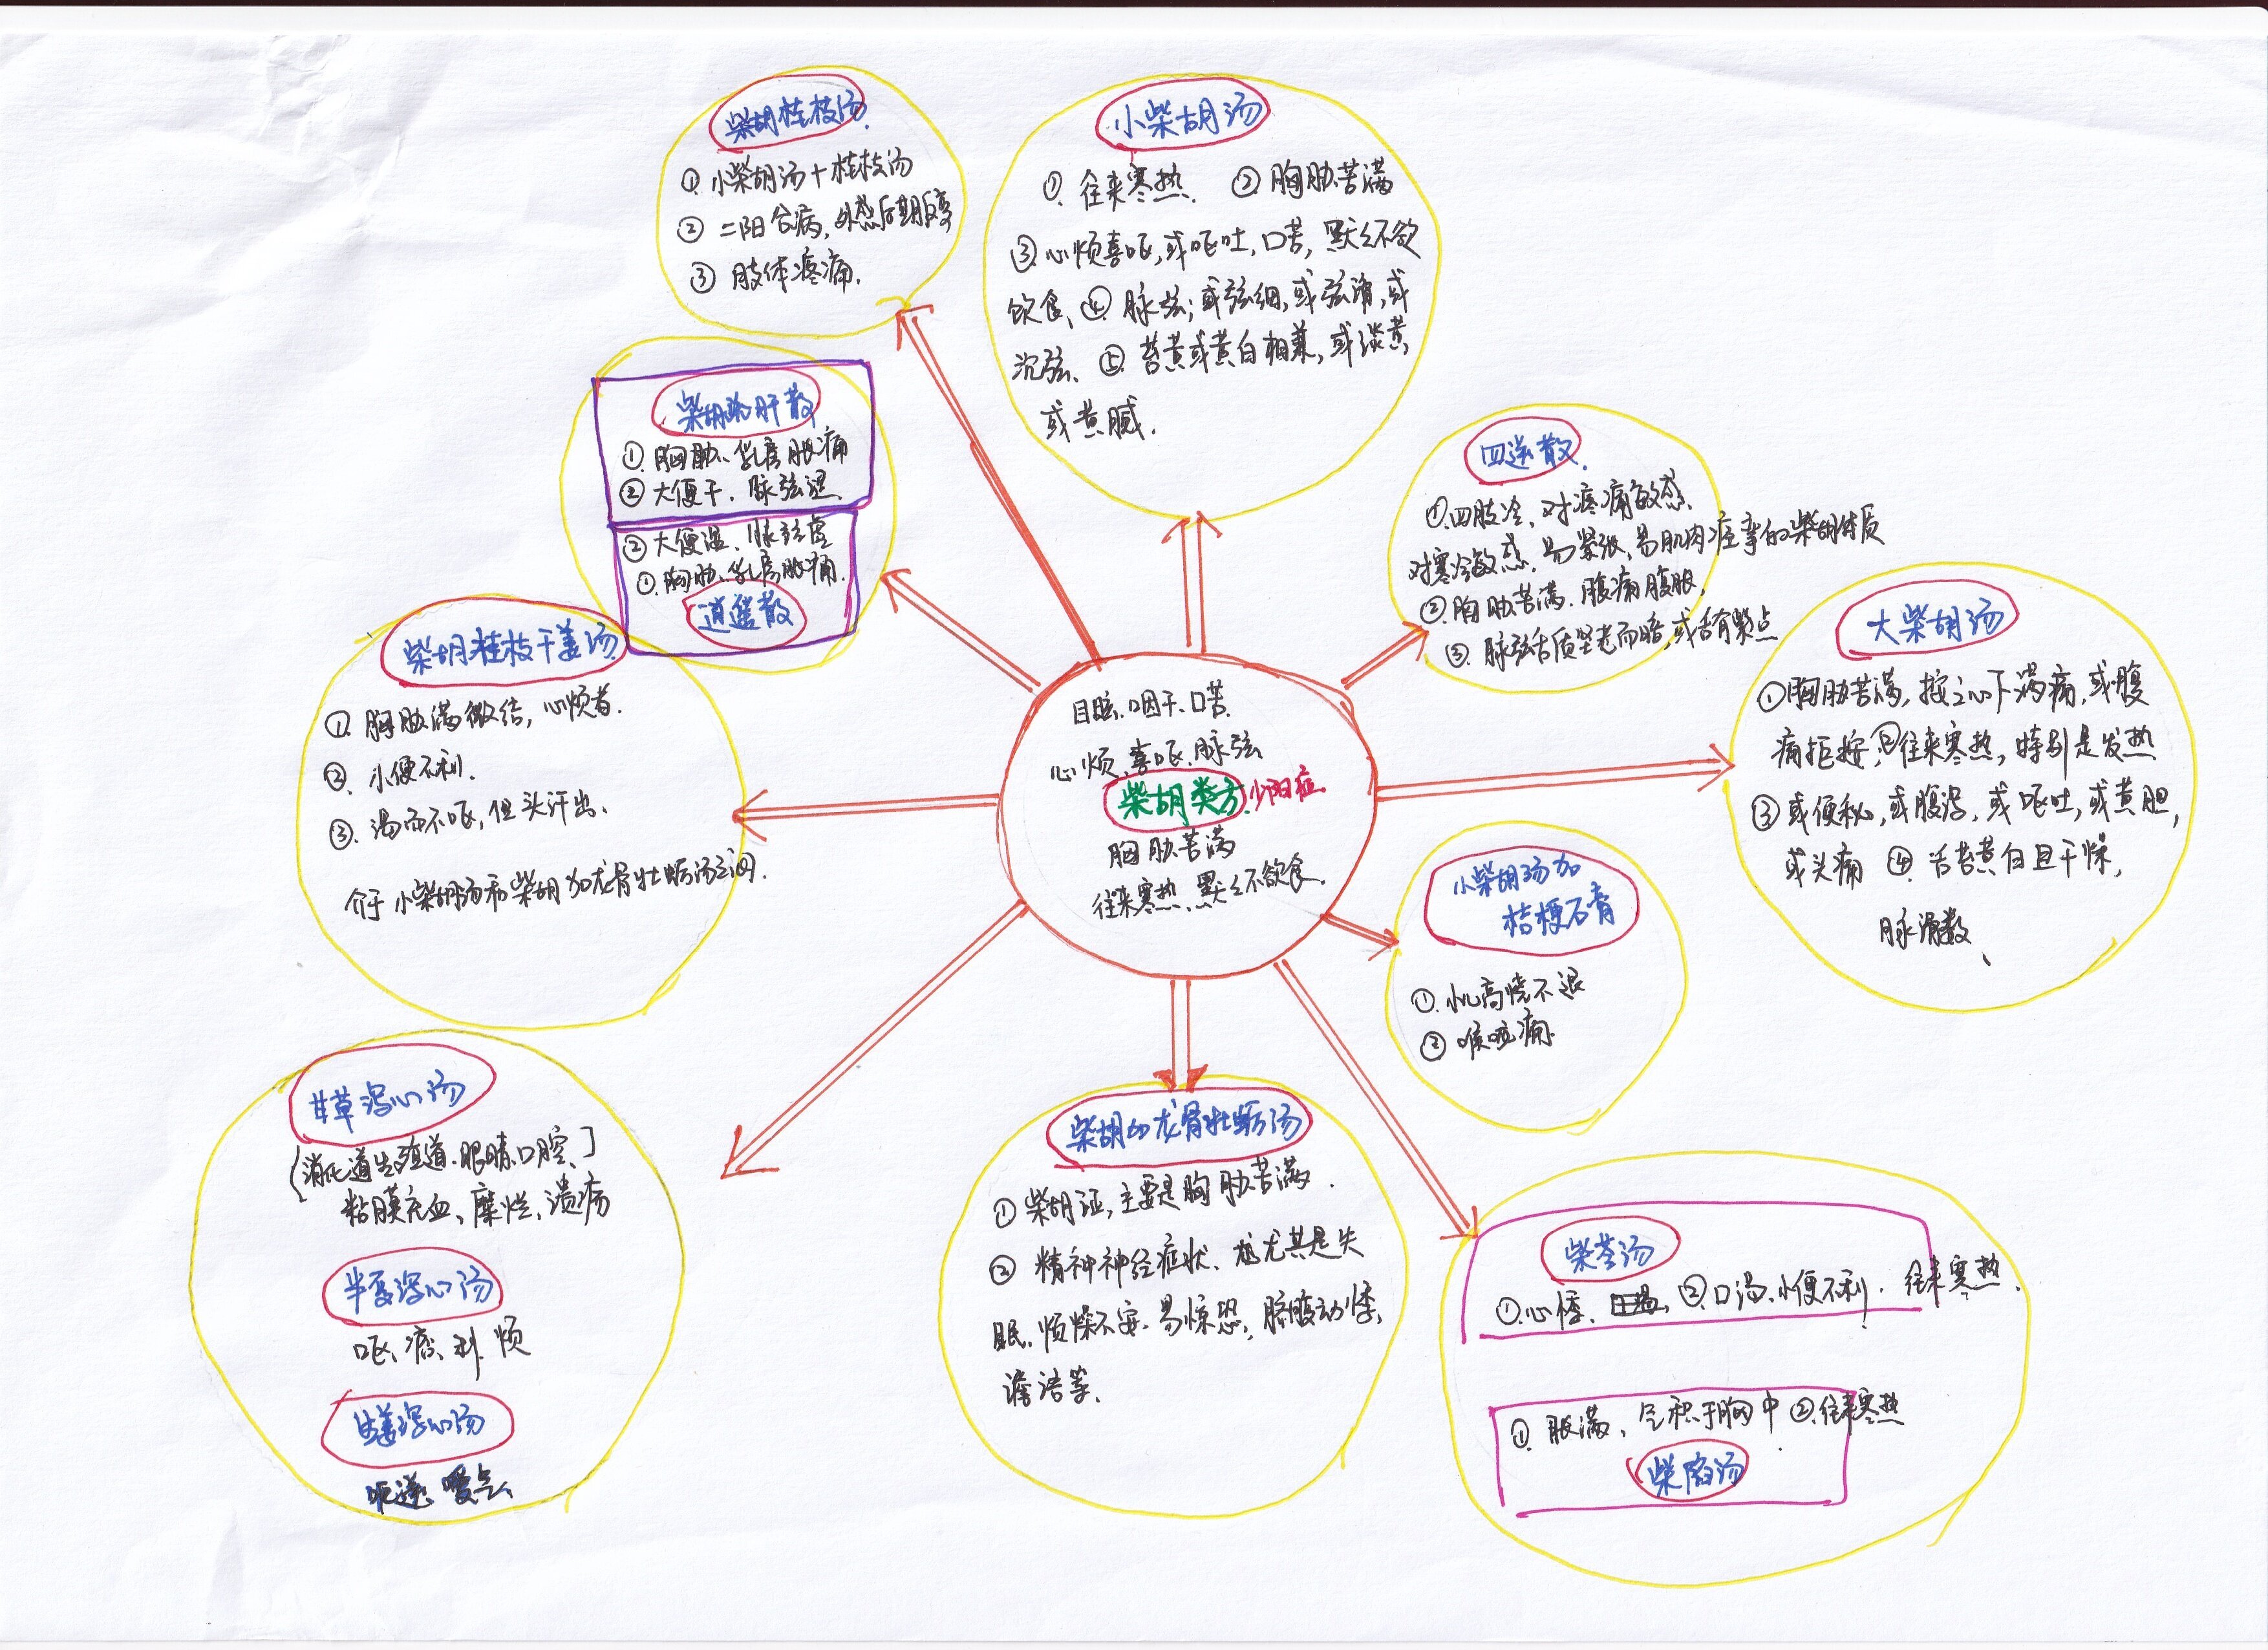 柴胡桂枝汤.
① 小柴胡汤+桂枝汤
② 二阳合病,外感后期反复
③ 肢体疼痛.
小柴胡汤
① 往来寒热. ② 胸胁苦满
③ 心烦喜呕,或呕吐,口苦,默々不欲
饮食、④ 脉弦;或弦细,或弦滑,或
沉弦、⑤ 苔黄或黄白相兼,或淡黄,
或黄腻.
柴胡疏肝散
① 胸胁、乳房胀痛
② 大便干. 脉弦涩.
② 大便溏. 脉弦虚
① 胸胁、乳房胀痛.
逍遥散
四逆散.
①.四肢冷、对疼痛敏感.
对寒冷敏感.易紧张,易肌肉痉挛的柴胡体质
② 胸胁苦满.腹痛腹胀,
③. 脉弦舌质坚老而暗,或舌有紫点
大柴胡汤
①胸胁苦满,按之心下满痛,或腹
痛拒按,②往来寒热,特别是发热
③ 或便秘,或腹泻,或呕吐,或黄胆,
或头痛 ④. 舌苔黄白且干燥,
脉滑数、
柴胡桂枝干姜汤
①. 胸胁满微结,心烦者.
②. 小便不利.
③. 渴而不呕,但头汗出、
介于小柴胡汤和柴胡加龙骨牡蛎汤之间.
目眩.咽干.口苦.
心烦.喜呕.脉弦
柴胡类方.少阳症.
胸胁苦满
往来寒热、默々不欲食.
小柴胡汤加
桔梗石膏
①. 小儿高烧不退
② 喉咙痛.
甘草泻心汤
(消化道生殖道.眼睛.口腔、]
粘膜充血、糜烂、溃疡
半夏泻心汤
呕、痞、利.烦
生姜泻心汤
呃逆、嗳气
柴胡加龙骨牡蛎汤
① 柴胡证,主要是胸胁苦满.
② 精神神经症状、尤其是失
眠.烦燥不安.易惊恐,脐腹动悸,
谵语等.
柴苓汤
①.心悸. ②.口渴.小便不利. 往来寒热.
①. 胀满、气积于胸中 ②.往来寒热
柴陷汤